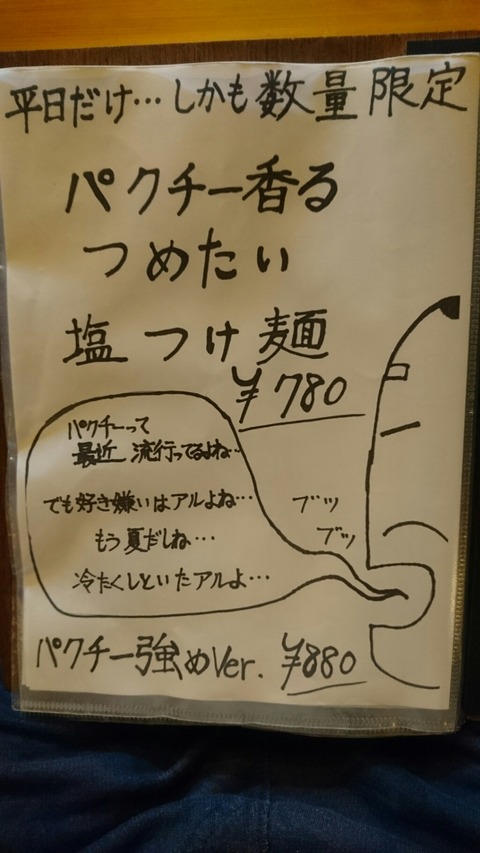 平日だけ…しかも数量限定
パクチー香る
つめたい
塩つけ麺
¥780
パクチーって
最近 流行ってるよね…
でも好き嫌いはアルよね…
もう夏だしね…
冷たくしといたアルよ…
ブツ
ブツ
パクチー強めVer. ¥880